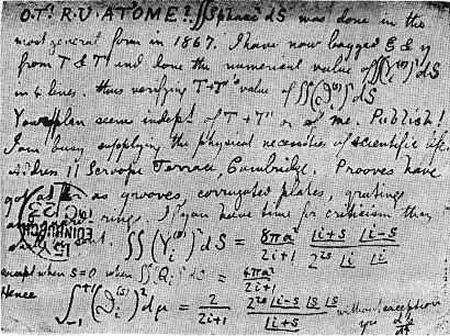 O.T'! R.U. AT 'OME? ∬Spharc² dS was done in the
most general form in 1867. I have now bagged ξ & η
from T & T' and done the numerical value of ∬(Yᵢ⁽ˢ⁾)² dS
in 4 lines. thus verifying T+T''s value of ∬(ϑᵢ⁽ˢ⁾)² dS
Your plan seems indept of T + T' or of me. Publish!
I am busy supplying the physical necessities of scientific life.
Address 11 Scroope Terrace, Cambridge. Prooves have
got as far as grooves, corrugated plates, gratings
rings. If you have time for criticism they
sent. ∬(Yᵢ⁽ˢ⁾)² dS = 8πa²/(2i+1) |i+s |i−s / 2²ˢ |i |i
except when s=0 when ∬Qᵢ² dS = 4πa²/(2i+1)
Hence ∫₋₁⁺¹(ϑᵢ⁽ˢ⁾)² dμ = 2/(2i+1) 2²ˢ |i−s |s |s / |i+s without exception